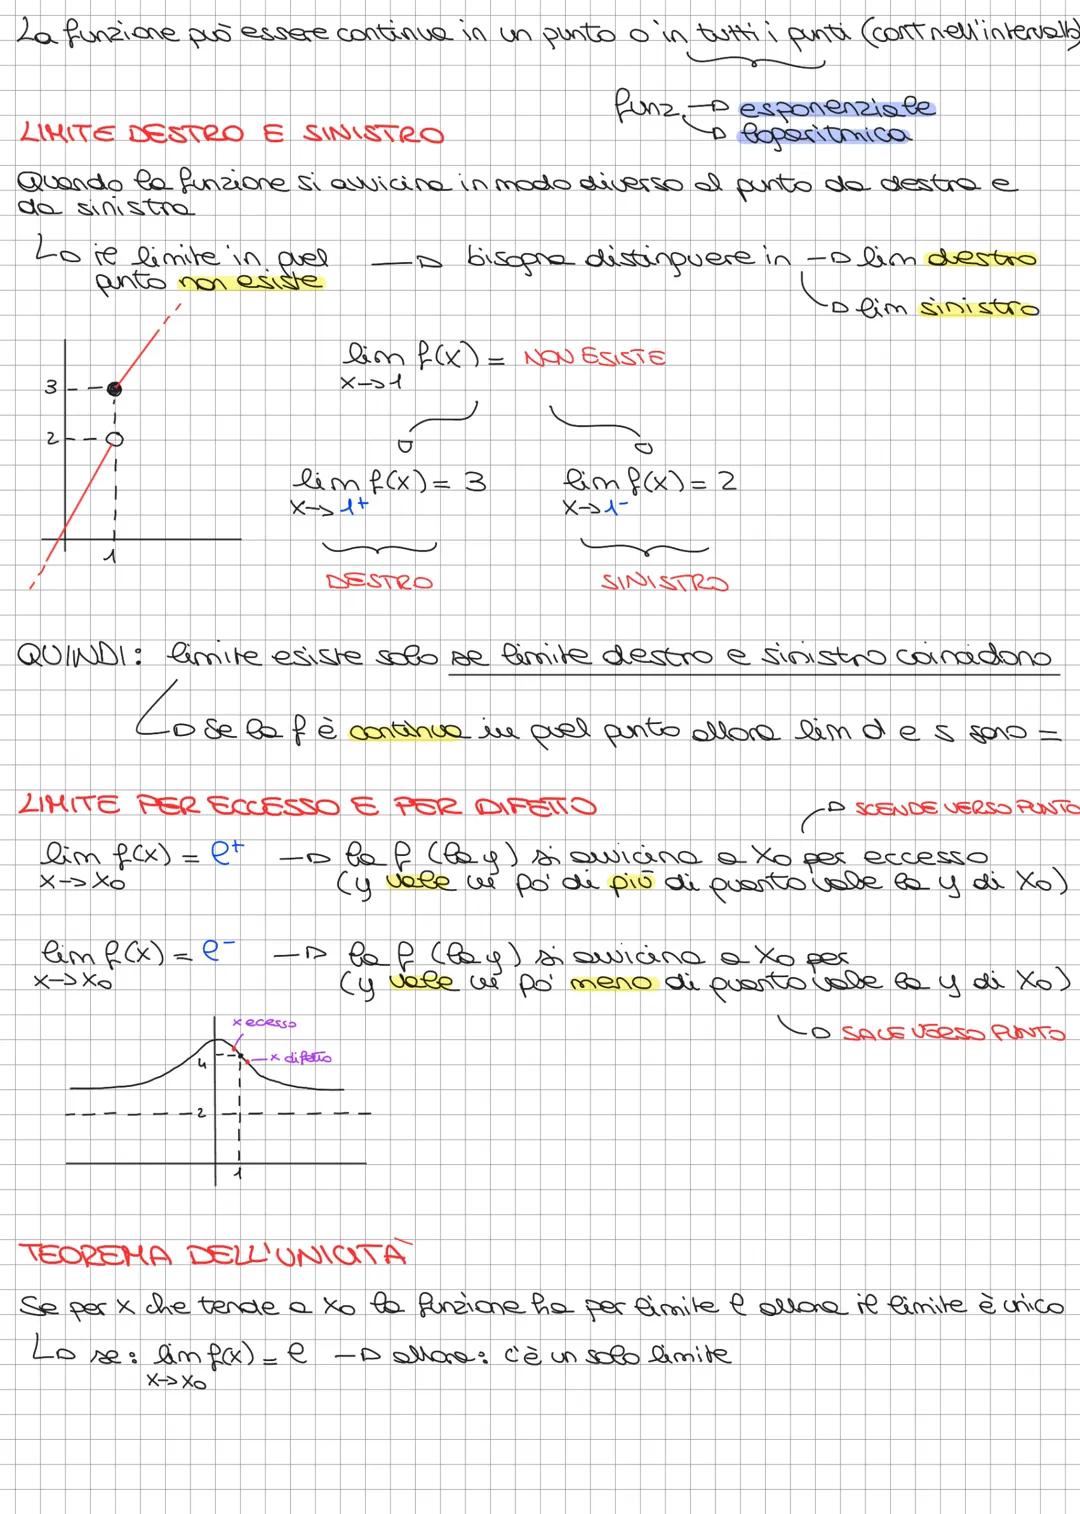 La funzione può essere continua in un punto o in tutti i punti (cont nell'intervallo)
funz. → esponenziale
→ logaritmica
LIMITE DESTRO E SINISTRO
Quando la funzione si avvicina in modo diverso al punto da destra e
da sinistra
↳ il limite in quel → bisogna distinguere in → lim destro
punto non esiste
↳ lim sinistro
lim f(x) = NON ESISTE
x→1
3
2
1
lim f(x) = 3 lim f(x) = 2
x→1+ x→1-
DESTRO SINISTRO
QUINDI: limite esiste solo se limite destro e sinistro coincidono
↳ se la f è continua in quel punto allora lim d e s sono =
LIMITE PER ECCESSO E PER DIFETTO → SCENDE VERSO PUNTO
lim f(x) = l+ → la f (la y) si avvicina a x0 per eccesso
x→x0 (y vale un po' di più di quanto vale la y di x0)
lim f(x) = l- → la f (la y) si avvicina a x0 per
x→x0 (y vale un po' meno di quanto vale la y di x0)
↳ SALE VERSO PUNTO
x ecesso
x difetto
4
2
1
TEOREMA DELL'UNICITÀ
Se per x che tende a x0 la funzione ha per limite l allora il limite è unico
↳ se: lim f(x) = l → allora: c'è un solo limite
x→x0